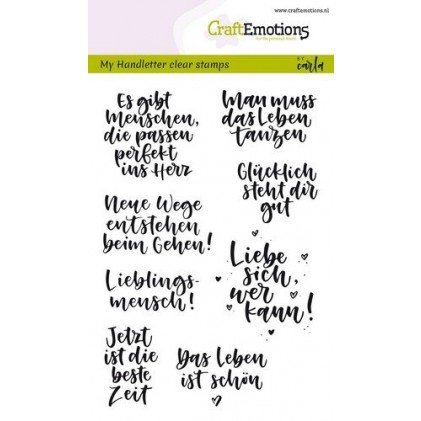 www.craftemotions.nl
CraftEmotions
My Handletter clear stamps
BY
carla
Es gibt
Menschen,
die passen
perfekt
ins Herz
Man muss
das Leben
tanzen
Glücklich
steht dir
gut
Neue Wege
entstehen
beim Gehen!
Liebe
sich,
wer
kann!
Lieblings-
mensch!
Jetzt
ist die
beste
Zeit
Das Leben
ist schön